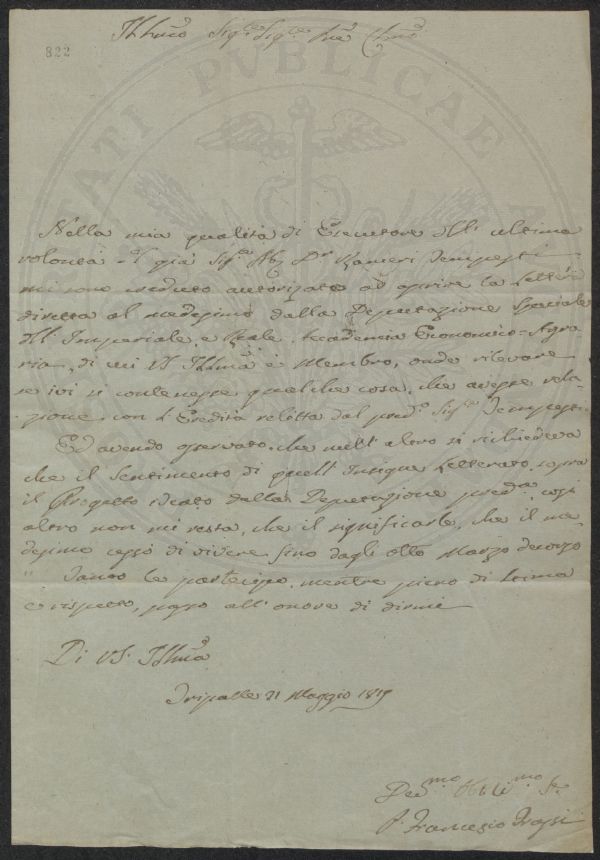 Illmo Sigre Sigre
822
Nella mia qualità di Esecutore dell' ultima
volontà del già Sige Ab. Dr Ranieri Tempesti
mi sono veduto autorizato ad aprire la Lettera
diretta al medesimo dalla Deputazione Speciale
dell' Imperiale, e Reale Accademia Economico=Agra
ria, di cui VS Illma è Membro, onde rilevare
se ivi si contenesse qualche cosa, che avesse rela=
zione con l'Eredità relitta dal pred.o Sige Tempesti.
Ed avendo osservato, che null' altro si richiedeva
che il Sentimento di quell' Insigne Letterato sopra
il Progetto ideato dalla Deputazione preda, così
altro non mi resta, che il significarle, che il me=
desimo cessò di vivere fino dagli otto Marzo decorso
Tanto le partecipo, mentre pieno di stima
e rispetto, passo all' onore di dirmi
Di VS. Illma
Tripalle 21 Maggio 1819
Devmo Obblimo Se.
P. Francesco
TATI PVBLICAE